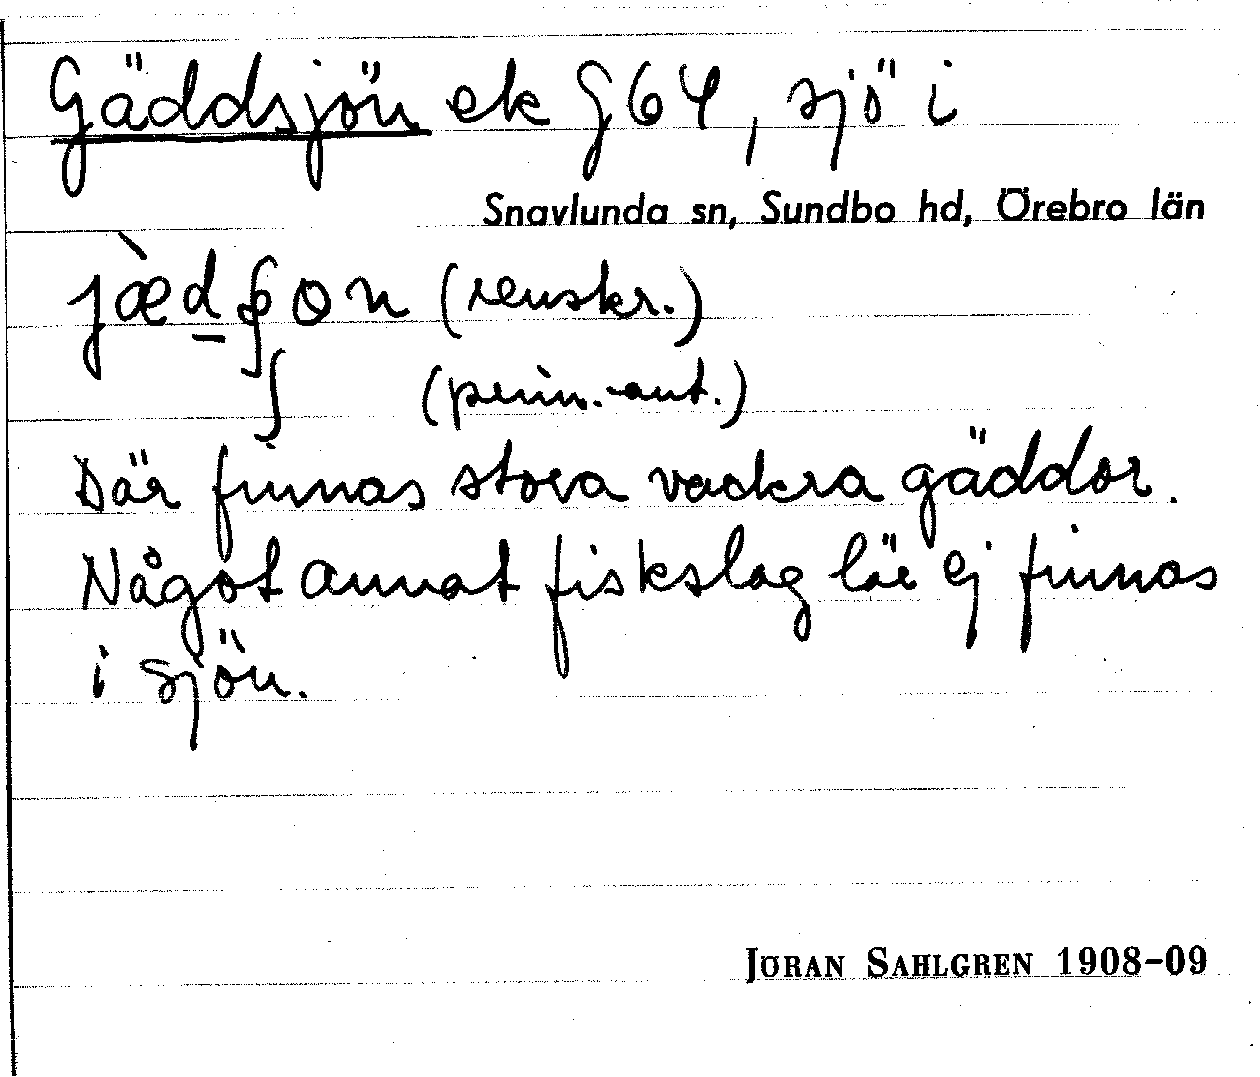 Gäddsjön ek G64, sjö i
Snavlunda sn, Sundbo hd, Örebro län
(renskr.)
ʃ (penn.-ant.)
Där finnas stora vackra gäddor.
Något annat fiskslag lär ej finnas
i sjön.
JÖRAN SAHLGREN 1908–09